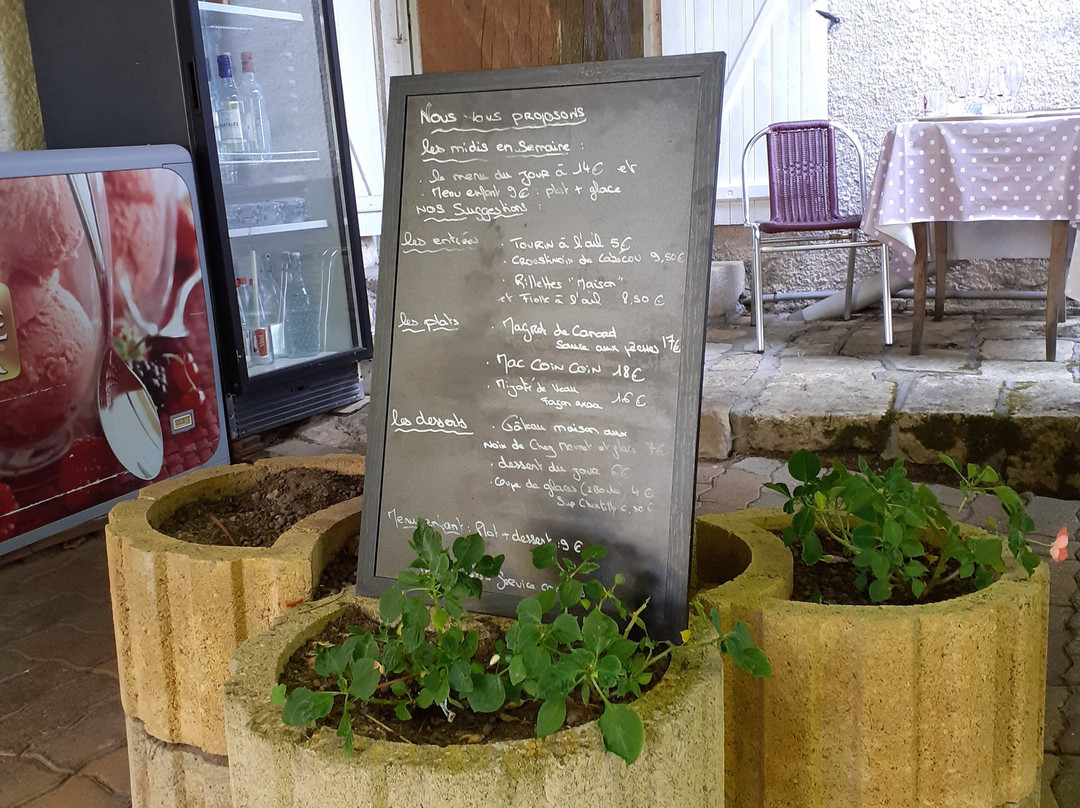 Nous vous proposons
les midis en semaine :
. le menu du jour à 14€ et
. Menu enfant 9€ : plat + glace
Nos Suggestions :
les entrées . TOURIN à l'ail 5€
. CROUSTINOIX de Cabécou 9,50€
. Rillettes "Maison"
et Fiolle à l'ail 8,50€
les plats . Magret de Canard
Sauce aux pêches 17€
. MAC COIN COIN 18€
. Mijoté de Veau
Façon axoa 16€
les desserts . Gâteau maison aux
Noix de Chez et glace 7€
. dessert du jour 6€
. Coupe de glaces (2 Boules 4€
Sup Chantilly 0,50€
Menu enfant : Plat + dessert : 9€
Service